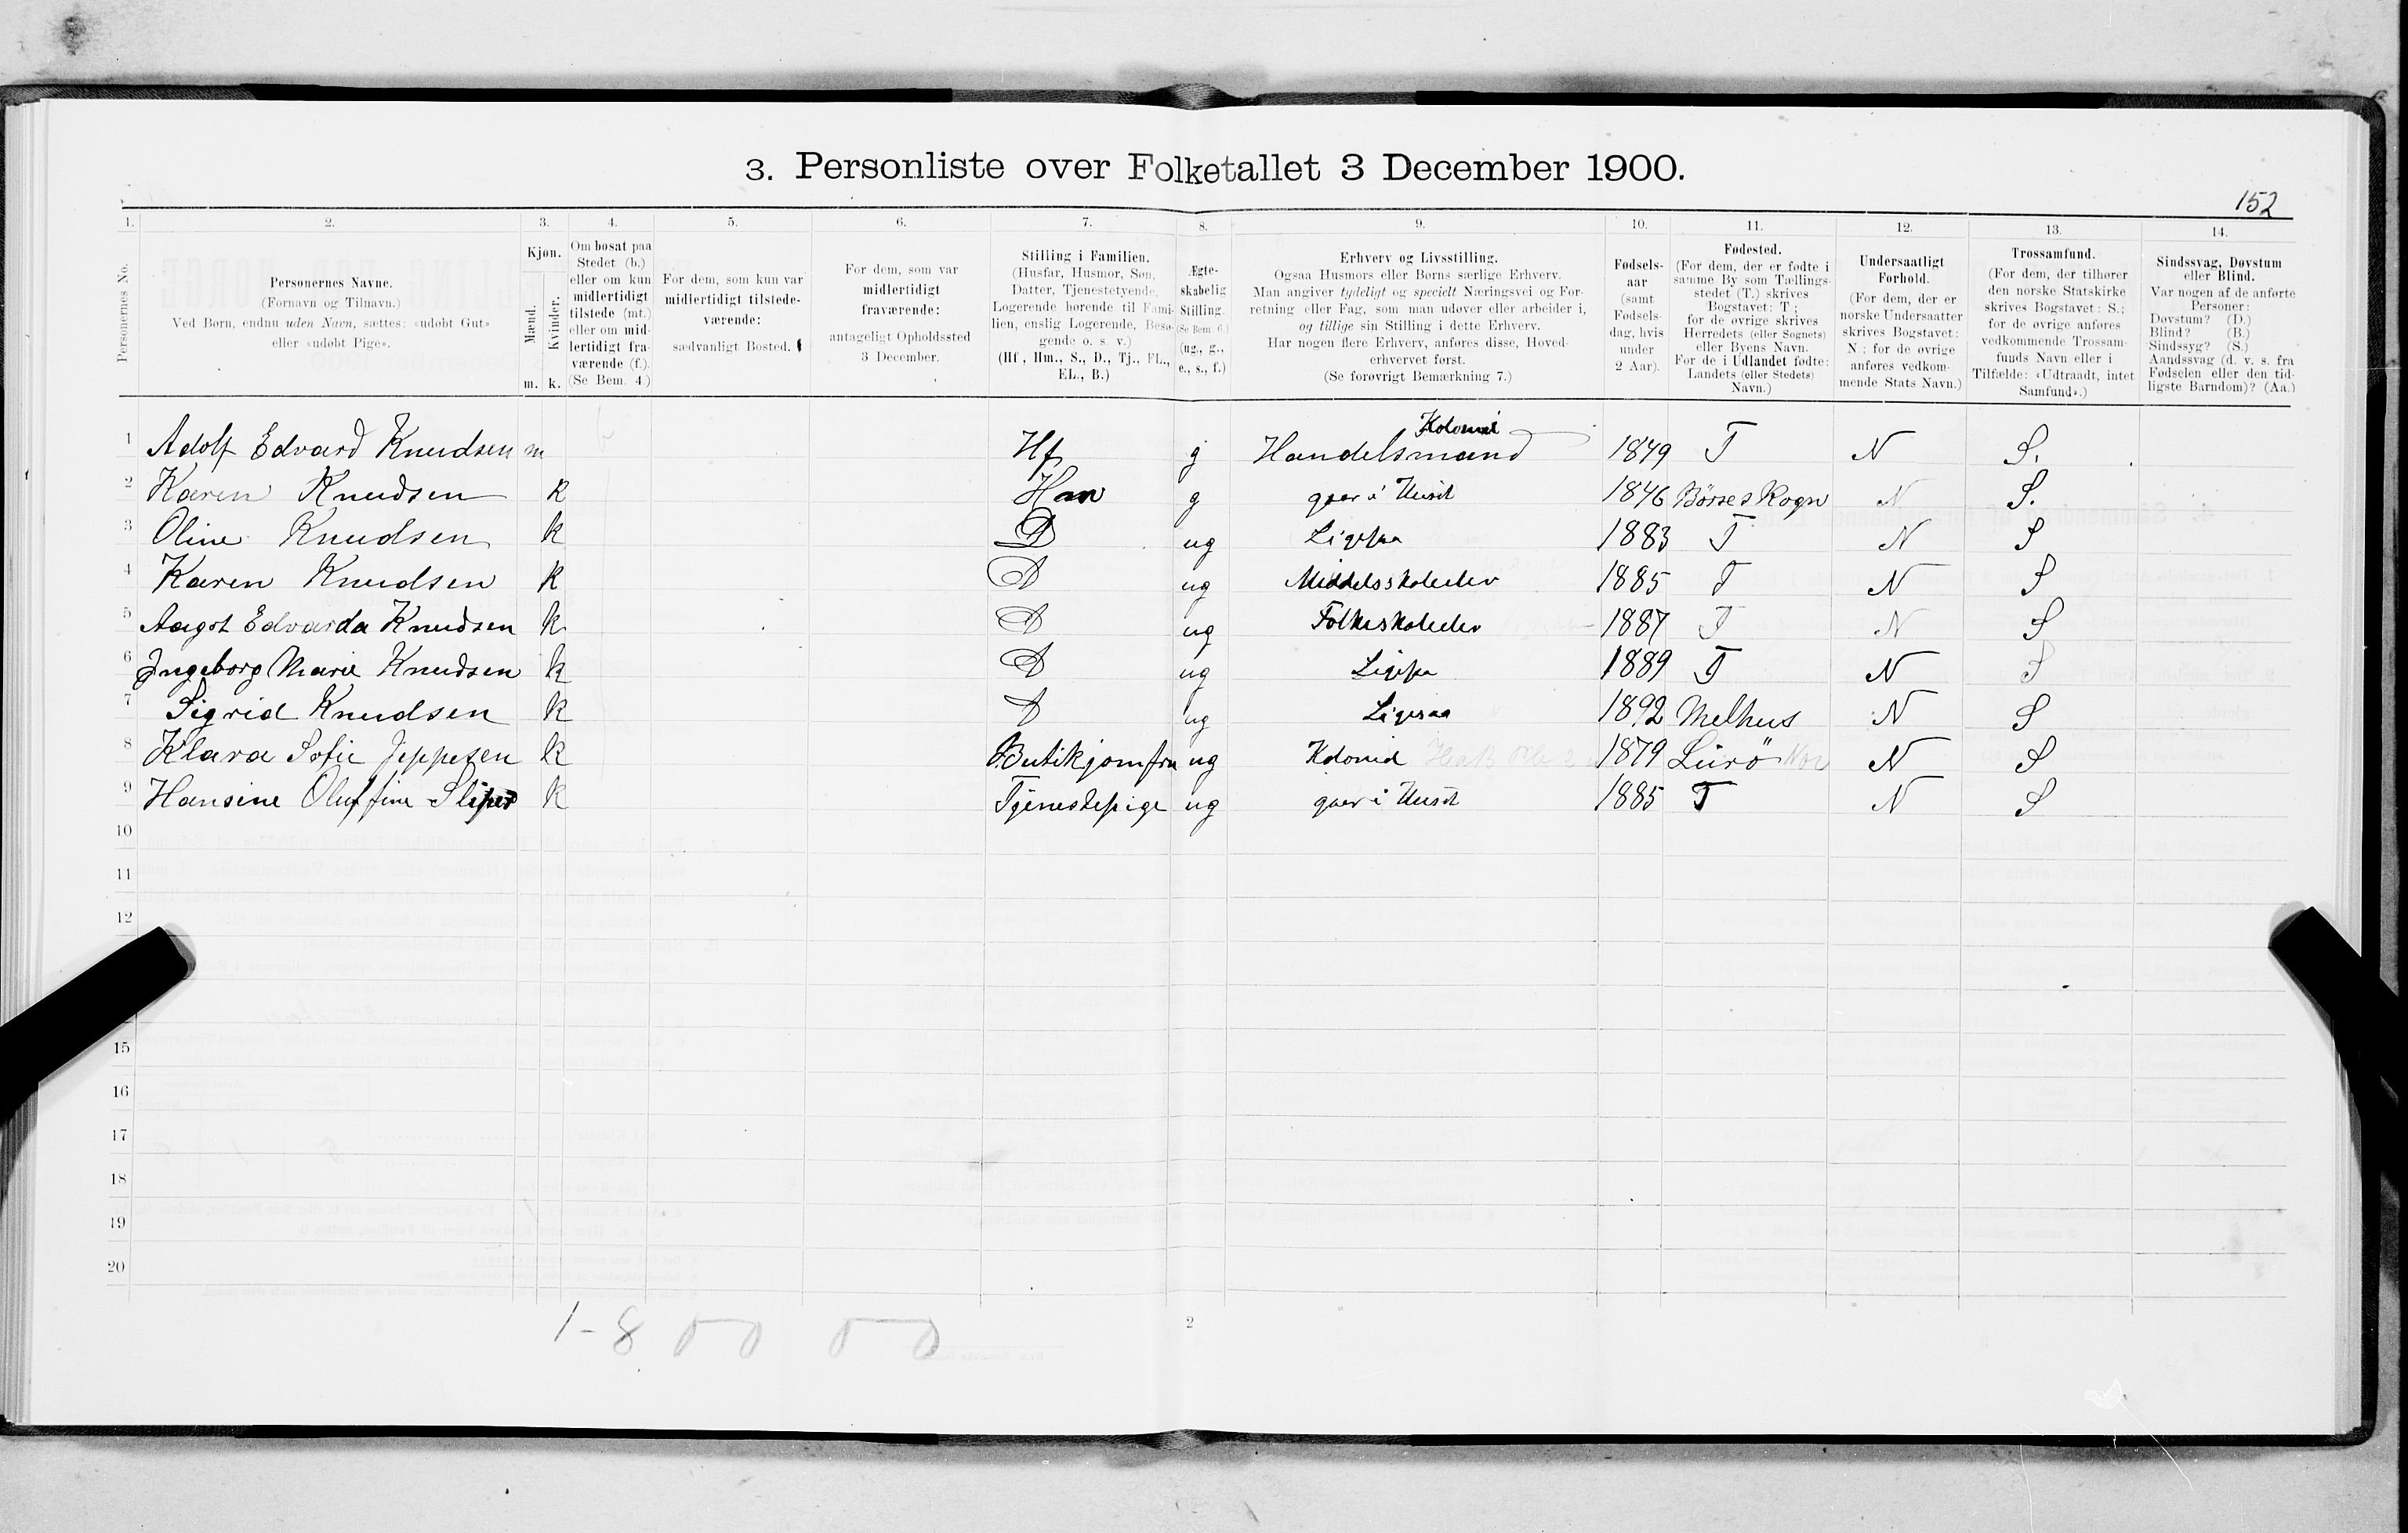 3. Personliste over Folketallet 3 December 1900.
152
1. 2. 3. 4. 5. 6. 7. 8. 9. 10. 11. 12. 13. 14.
Personernes No.
Personernes Navne.
(Fornavn og Tilnavn.)
Ved Børn, endnu uden Navn, sættes: «udøbt Gut»
eller «udøbt Pige».
Kjøn.
Mænd.
Kvinder.
m. k.
Om bosat paa
Stedet (b.)
eller om kun
midlertidigt
tilstede (mt.)
eller om mid-
lertidigt fra-
værende (f.).
(Se Bem. 4.)
For dem, som kun var
midlertidigt tilstede-
værende:
sædvanligt Bosted.
For dem, som var
midlertidigt
fraværende:
antageligt Opholdssted
3 December.
Stilling i Familien.
(Husfar, Husmor, Søn,
Datter, Tjenestetyende,
Logerende hørende til Fami-
lien, enslig Logerende, Besø-
gende o. s. v.)
(Hf., Hm., S., D., Tj., FL.,
EL., B.)
Ægte-
skabelig
Stilling.
(Se Bem. 6.)
(ug., g.,
e., s., f.)
Erhverv og Livsstilling.
Ogsaa Husmors eller Børns særlige Erhverv.
Man angiver tydeligt og specielt Næringsvei og For-
retning eller Fag, som man udøver eller arbeider i,
og tillige sin Stilling i dette Erhverv.
Har nogen flere Erhverv, anføres disse, Hoved-
erhvervet først.
(Se forøvrigt Bemærkning 7.)
Fødsels-
aar
(samt
Fødsels-
dag, hvis
under
2 Aar).
Fødested.
(For dem, der er fødte i
samme By som Tællings-
stedet (T.) skrives
Bogstavet: T;
for de øvrige skrives
Herredets (eller Sognets)
eller Byens Navn.
For de i Udlandet fødte:
Landets (eller Stedets)
Navn.)
Undersaatligt
Forhold.
(For dem, der er
norske Undersaatter
skrives Bogstavet:
N; for de øvrige
anføres vedkom-
mende Stats Navn.)
Trossamfund.
(For dem, der tilhører
den norske Statskirke
skrives Bogstavet: S.;
for de øvrige anføres
vedkommende Trossam-
funds Navn eller i
Tilfælde: «Udtraadt, intet
Samfund».)
Sindssvag, Døvstum
eller Blind.
Var nogen af de anførte
Personer:
Døvstum? (D.)
Blind? (B.)
Sindssyg? (S.)
Aandssvag (d. v. s. fra
Fødselen eller den tid-
ligste Barndom)? (Aa.)
Kolonial
1 Adolf Edvard Knudsen m b Hf g Handelsmand 1849 T N S.
2 Karen Knudsen k Hm g gaar i Huset 1846 Börses Sogn N S.
3 Oline Knudsen k D ug Ligesaa 1883 T N S
4 Karen Knudsen k D ug Middelsskoleelev 1885 T N S
5 Aagot Edvarda Knudsen k D ug Folkeskoleelev 1887 T N S
6 Ingeborg Marie Knudsen k D ug Ligesaa 1889 T N S
7 Sigrid Knudsen k D ug Ligesaa 1892 Melhus N S
8 Klara Sofie Jeppesen k Butikjomfru ug Kolonial 1879 Lurö N S
9 Hansine Oluffine Sliper k Tjenestepige ug gaar i Huset 1885 T N S
10
11
12
15
16
17
18
19
20
1-8 0 0 0 0
2